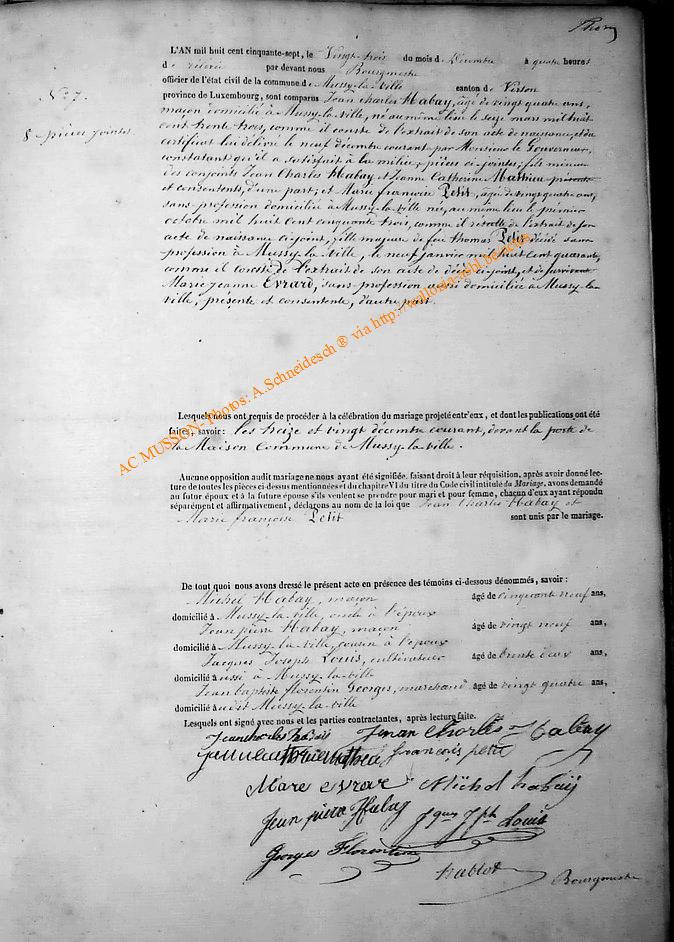 L'AN mil huit cent cinquante-sept, le Vingt-trois du mois de Décembre à quatre heures
de relevée par devant nous Bourgmestre
officier de l'état civil de la commune de Mussy-la-Ville canton de Virton
province de Luxembourg, sont comparus Jean Charles Habay, âgé de vingt quatre ans,
N° 7.
maçon domicilié à Mussy-la-ville, né au même lieu le seize mars mil huit
cent trente trois, comme il conste de l'extrait de son acte de naissance, et du
8 pièces jointes
certificat lui délivré le neuf décembre courant par Monsieur le Gouverneur,
constatant qu'il a satisfait à la milice, pièces ci-jointes; fils mineur
des conjoints Jean Charles Habay et Jeanne Catherine Mathieu présents
et consentents, d'une part; et Marie françoise Petit, âgée de vingt quatre ans,
sans profession domiciliée à Mussy-la-ville née, au même lieu le premier
octobre mil huit cent cinquante trois, comme il résulte de l'extrait de son
acte de naissance ci-joint, fille majeure de feu thomas Petit décédé sans
profession à Mussy-la-ville, le neuf janvier mil huit cent quarante,
comme il conste de l'extrait de son acte de décès ci-joint, et de survivante
Marie Jeanne Evrard, sans profession aussi domiciliée à Mussy-la-
ville, présente et consentente, d'autre part.
AC MUSSON- Photos: A.Schneidesch ® via http://wallonia-asbl.be
Lesquels nous ont requis de procéder à la célébration du mariage projeté entr'eux, et dont les publications ont été
faites, savoir: les treize et vingt décembre courant, devant la porte de
la Maison Commune de Mussy-la-ville.
Aucune opposition audit mariage ne nous ayant été signifiée, faisant droit à leur réquisition, après avoir donné lec-
ture de toutes les pièces ci-dessus mentionnées et du chapitre VI du titre du Code civil intitulé du Mariage, avons demandé
au futur époux et à la future épouse s'ils veulent se prendre pour mari et pour femme, chacun d'eux ayant répondu
séparément et affirmativement, déclarons au nom de la loi que Jean Charles Habay et
Marie françoise Petit sont unis par le mariage.
De tout quoi nous avons dressé le présent acte en présence des témoins ci-dessous dénommés, savoir :
Michel Habay, maçon âgé de cinquante neuf ans,
domicilié à Mussy-la-ville, oncle à l'époux
Jean pierre Habay, maçon âgé de vingt neuf ans,
domicilié à Mussy-la-ville, cousin à l'époux
Jacques Joseph Louis, cultivateur âgé de trente deux ans,
domicilié aussi à Mussy-la-ville
Jean baptiste florentin Georges, marchand âgé de vingt quatre ans,
domicilié audit Mussy-la-ville
Lesquels ont signé avec nous et les parties contractantes, après lecture faite.
Jean charles Habay
françois petit
Mare evrar Michel habaij
Jean pierre Habay Jques Jph Louis
Georges Florentin
hablot Bourgmestre